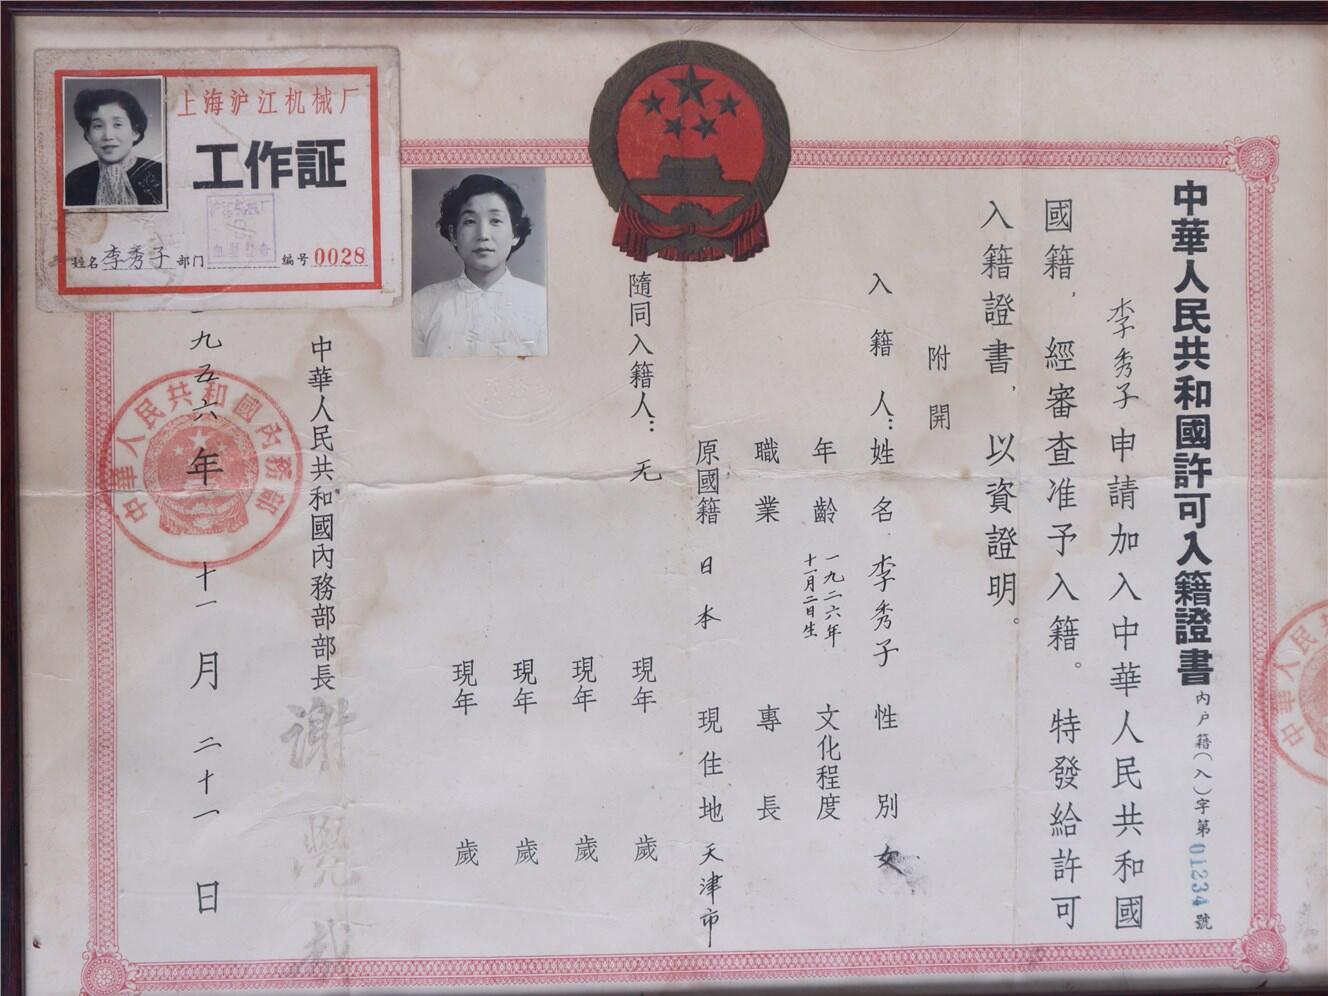 中華人民共和國許可入籍證書
内户籍(入)字第01234號
李秀子申請加入中華人民共和國
國籍,經審查准予入籍。特發給許可
入籍證書,以資證明。
附開
入籍人:姓名 李秀子 性別 女
年齡 一九二六年十一月二日生 文化程度
職業 專長
原國籍 日本 現住地 天津市
隨同入籍人: 无 現年 歲
現年 歲
現年 歲
現年 歲
中華人民共和國內務部部長
謝覺哉
一九五六年十一月二十一日
中華人民共和國內務部
上海沪江机械厂
工作証
姓名 李秀子 部门 编号 0028
中華人民共